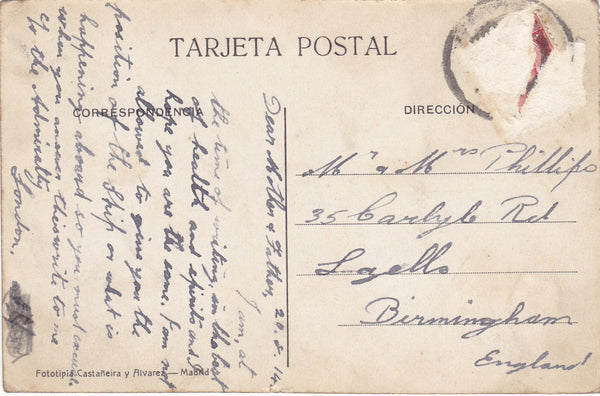 TARJETA POSTAL
CORRESPONDENCIA
DIRECCIÓN
Dear Mother & Father, 20.8.14
I am, at
the time of writing, in the best
of health and spirits and I
hope you are the same. I am not
allowed to give you the
position of the Ship or what is
happening aboard so you must excuse
when you answer this write to me
C/o the Admiralty
London.
Mr & Mrs Phillips
35 Carlyle Rd
Lozells
Birmingham
England
Fototipia Castañeira y Alvarez — Madrid